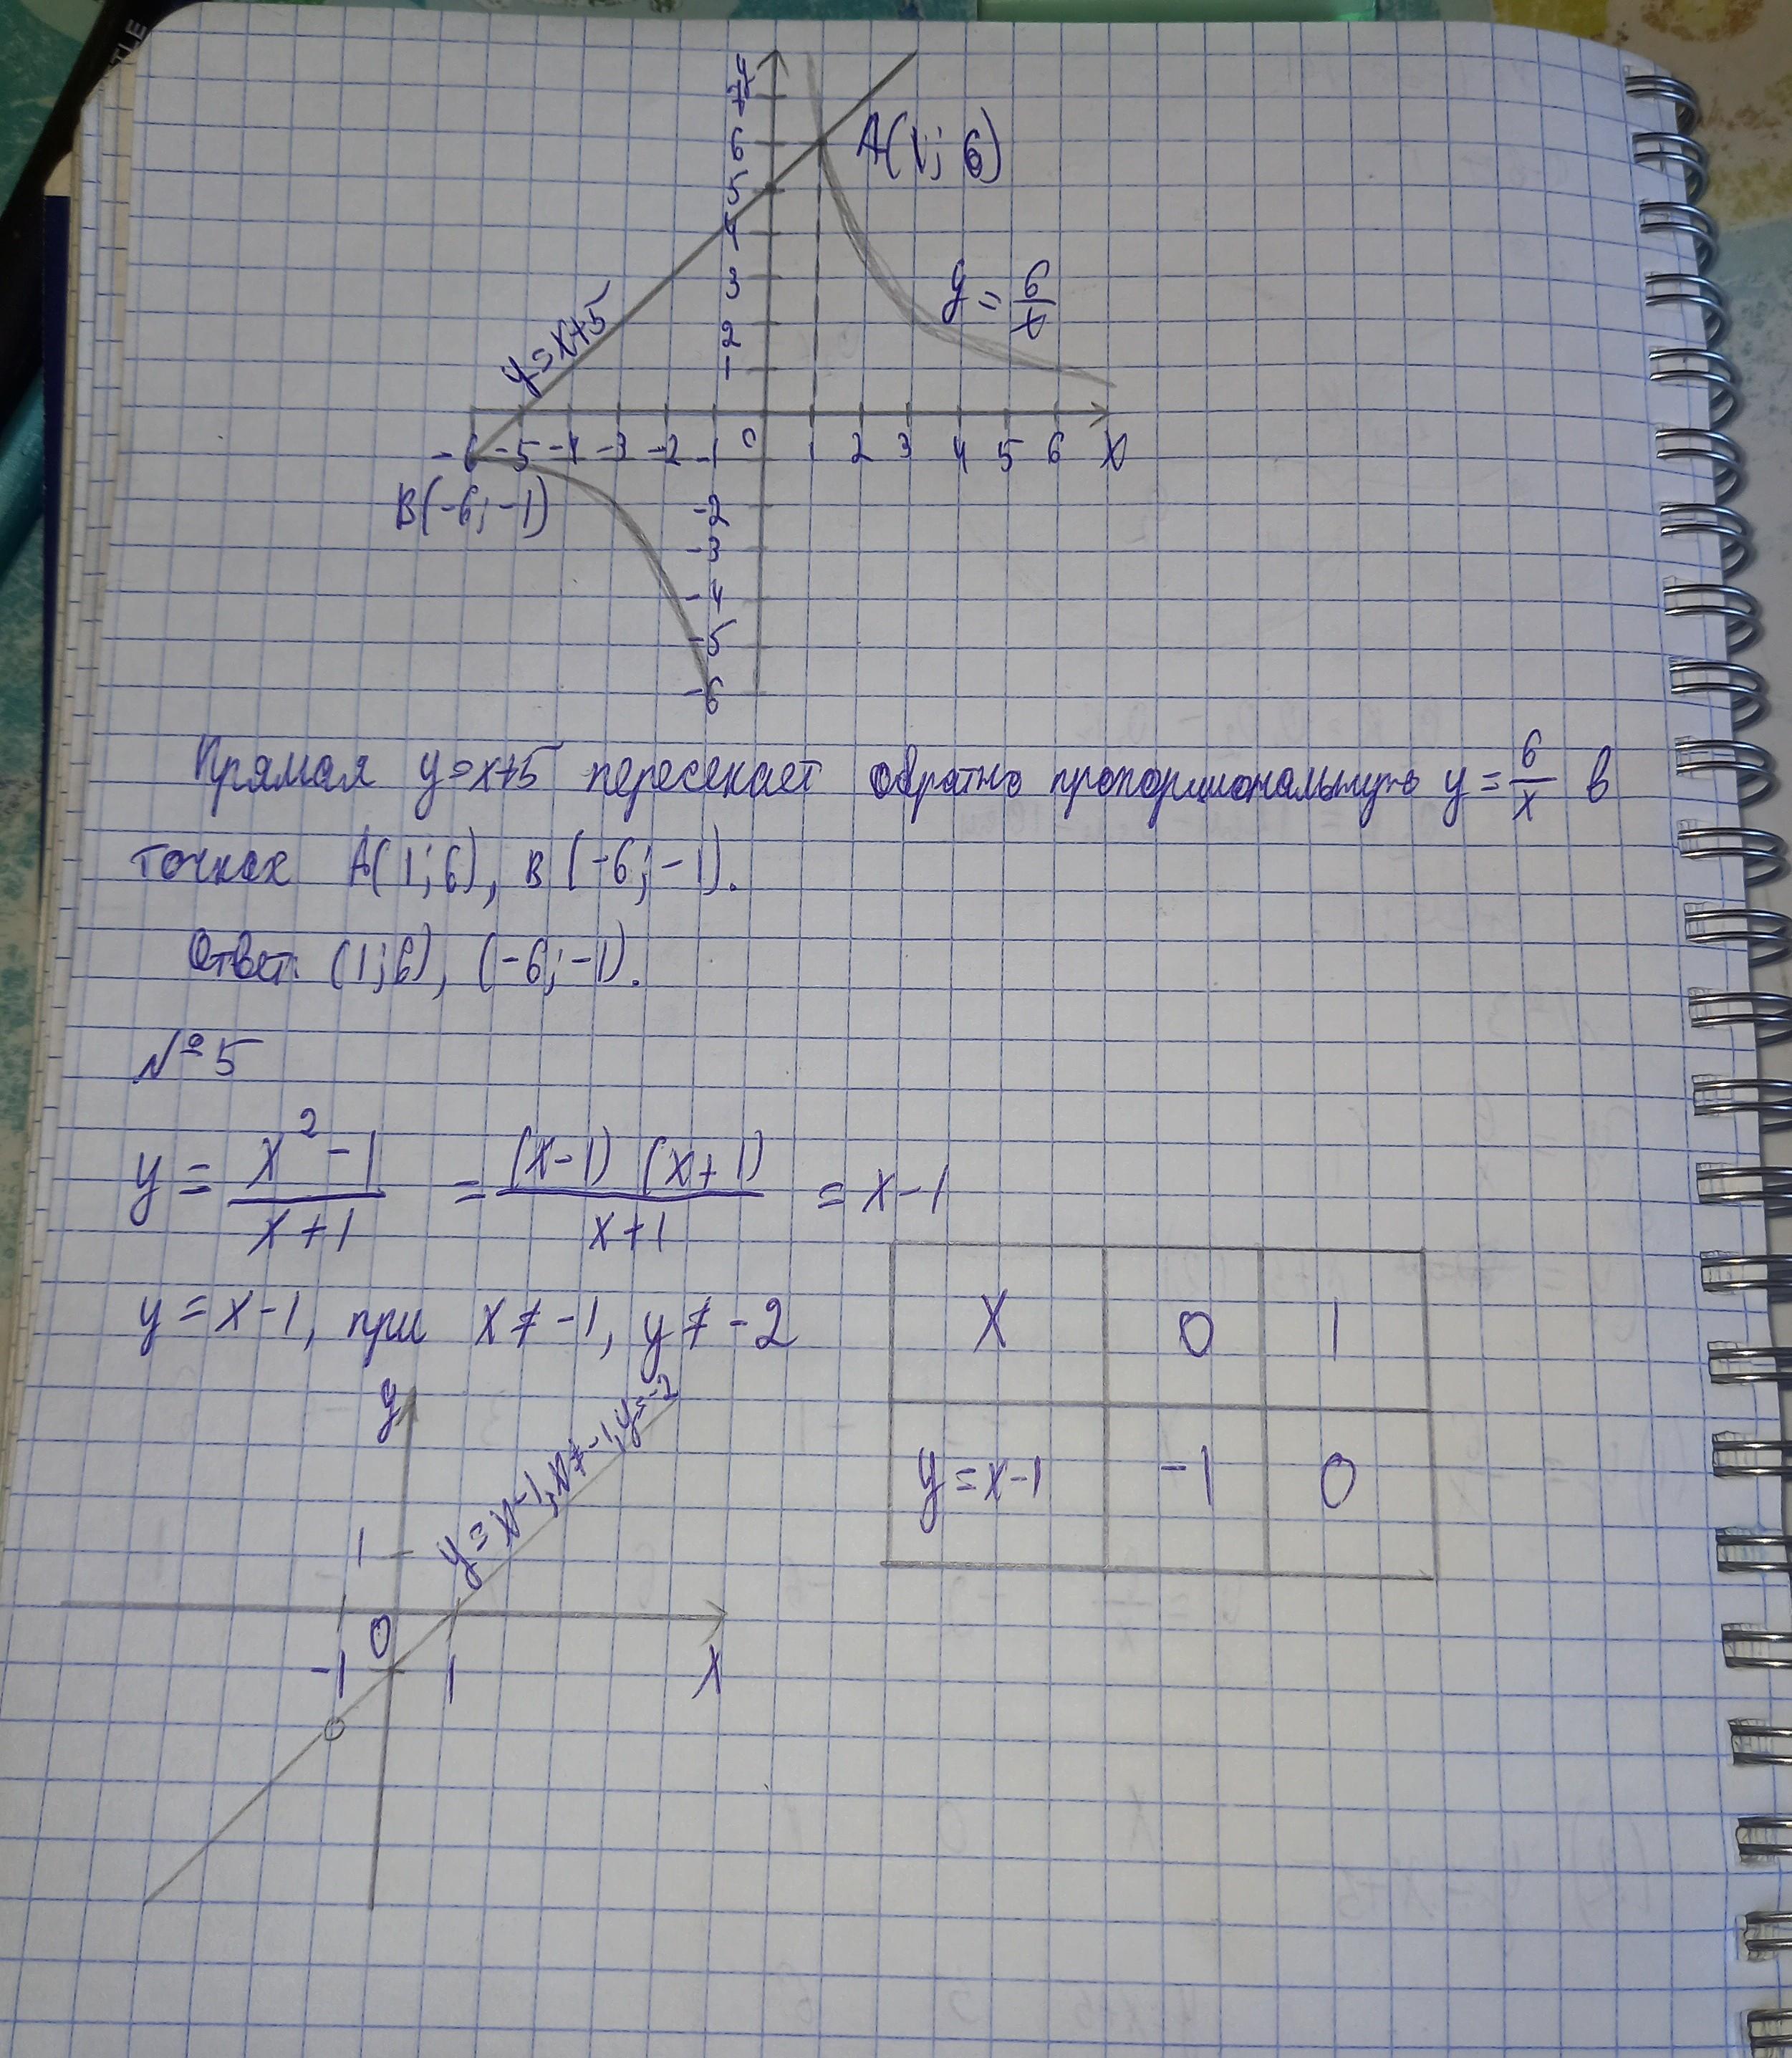 TLE
y
7
6
5
4
3
2
1
A(1; 6)
y = 6/x
y=x+5
-6 -5 -4 -3 -2 -1 0 1 2 3 4 5 6 x
B(-6; -1)
-2
-3
-4
-5
-6
Прямая y=x+5 пересекает обратно пропорциональную y = 6/x в
точках A(1;6), B(-6;-1).
Ответ: (1;6), (-6;-1).
№5
y = x²-1/x+1 = (x-1)(x+1)/x+1 = x-1
y = x-1, при x≠-1, y≠-2
x 0 1
y=x-1 -1 0
y
y=x-1, x≠-1, y=-2
1
0
-1 1 x